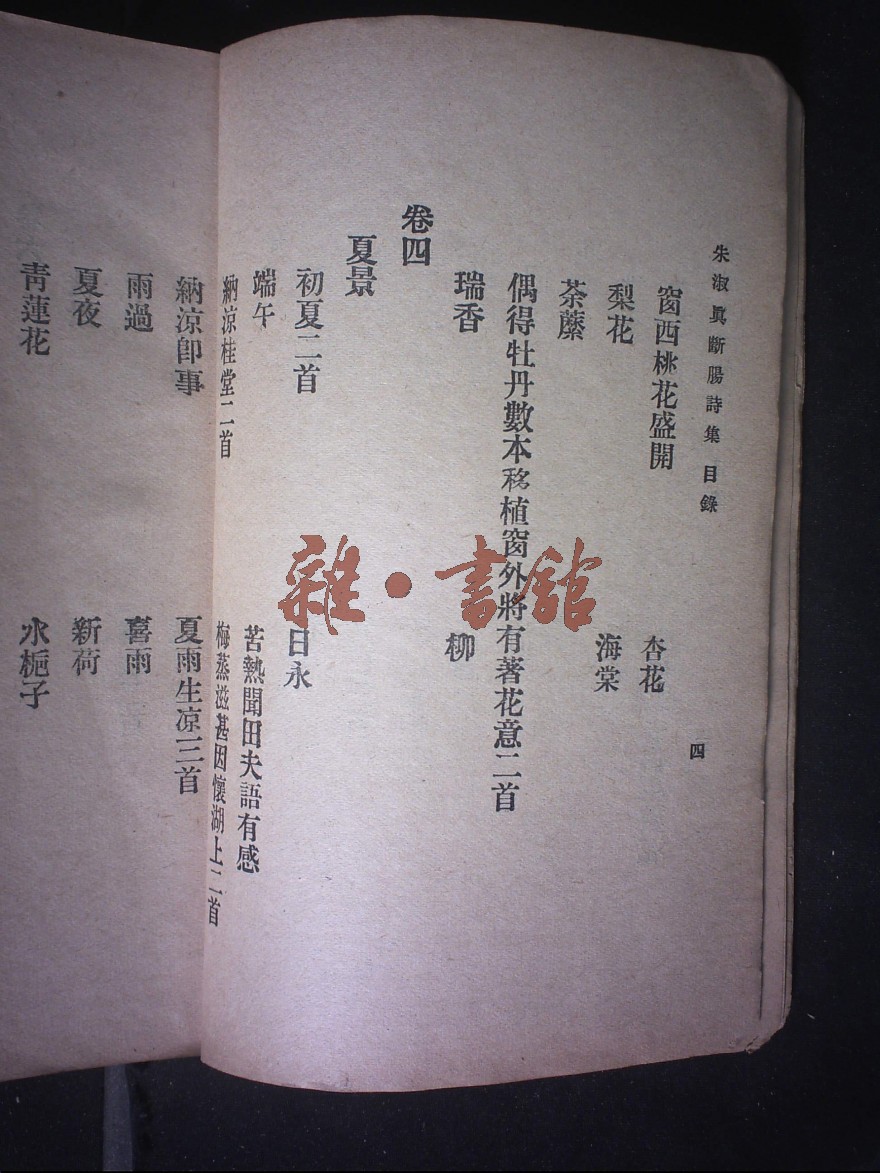 朱淑眞斷腸詩集 目錄 四
窗西桃花盛開 杏花
梨花 海棠
荼蘼
偶得牡丹數本移植窗外將有著花意二首
瑞香 柳
卷四
夏景
初夏二首 日永
端午 苦熱聞田夫語有感
納涼桂堂二首 梅蒸滋甚因懷湖上二首
納涼卽事 夏雨生凉三首
雨過 喜雨
夏夜 新荷
靑蓮花 水梔子
雜·書館